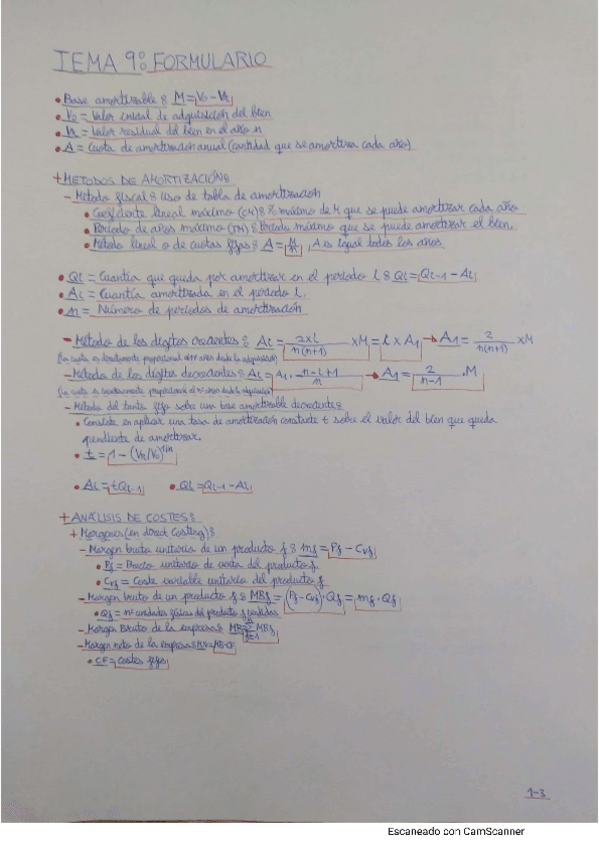 TEMA 9: FORMULARIO
• Base amortizable: M = V0 - VR
• V0 = Valor inicial de adquisición del bien
• VR = Valor residual del bien en el año n
• A = Cuota de amortización anual (cantidad que se amortiza cada año)
+ METODOS DE AMORTIZACIÓN:
- Método fiscal: uso de tabla de amortización
• Coeficiente lineal máximo (CM): % máximo de M que se puede amortizar cada año
• Período de años máximo (PM): Período máximo que se puede amortizar el bien.
• Método lineal o de cuotas fijas: A = M/n, A es igual todos los años.
• Qi = Cuantía que queda por amortizar en el período i: Qi = Qi-1 - Ai
• Ai = Cuantía amortizada en el período i.
• n = Número de períodos de amortización
- Método de los dígitos crecientes: Ai = 2xi/n(n+1) x M = i x A1 → A1 = 2/n(n+1) x M
(la cuota es directamente proporcional al nº años desde la adquisición)
- Método de los dígitos decrecientes: Ai = A1 · n-i+1/n → A1 = 2/n-1 · M
(la cuota es inversamente proporcional al nº años desde la adquisición)
- Método del tanto fijo sobre una base amortizable decreciente:
• Consiste en aplicar una tasa de amortización constante t sobre el valor del bien que queda
pendiente de amortizar.
• t = 1 - (VR/V0)^1/n
• Ai = tQi-1 • Qi = Qi-1 - Ai
+ ANÁLISIS DE COSTES:
+ Margenes (en direct costing):
- Margen bruto unitario de un producto j: mj = Pj - Cvj
• Pj = Precio unitario de venta del producto j.
• Cvj = Coste variable unitario del producto j
- Margen bruto de un producto j: MBj = (Pj - Cvj) · Qj = mj · Qj
• Qj = nº unidades físicas del producto j vendidas
- Margen Bruto de la empresa: MB = Σ j=1 MBj
- Margen neto de la empresa: MN = MB - CF
• CF = costes fijos
1-3
Escaneado con CamScanner